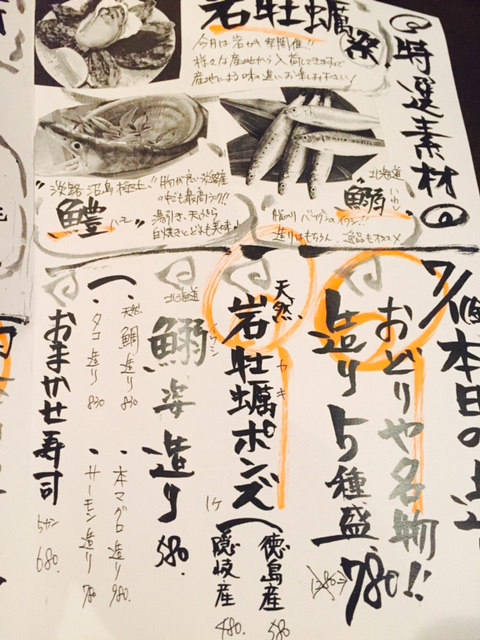 特選素材
岩牡蠣祭
今月は岩がき祭開催!!
様々な産地から入荷してきますので
産地による味の違いお楽しみ下さい!
北海道
鰯
いわし
造りはもちろん、塩焼もオススメ
淡路 沼島 極上
鱧
湯引き、天ぷら
白焼きとどれも美味!
本日の
おどりや名物!!
造り5種盛
780.
天然
岩牡蠣ポンズ
カキ
1ケ
徳島産 580
隠岐産 480.
北海道
鰯姿造り 580.
イワシ
・天然鯛造り 830
・本マグロ造り 980.
・タコ造り 830
・サーモン造り 780
おまかせ寿司
5カン 680.